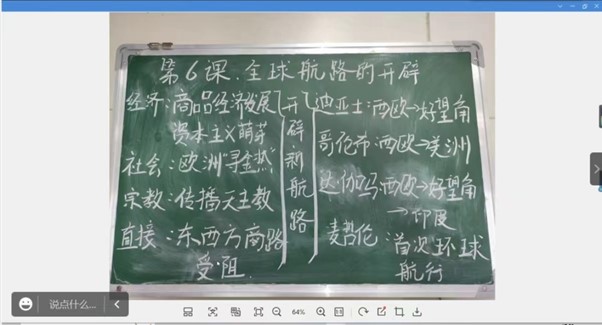 第6课.全球航路的开辟
经济:商品经济发展
资本主义萌芽
社会:欧洲"寻金热"
宗教:传播天主教
直接:东西方商路
受阻.
开辟新航路
迪亚士:西欧→好望角
哥伦布:西欧→美洲
达·伽马:西欧→好望角
→印度
麦哲伦:首次环球
航行
说点什么...
64%
1:1